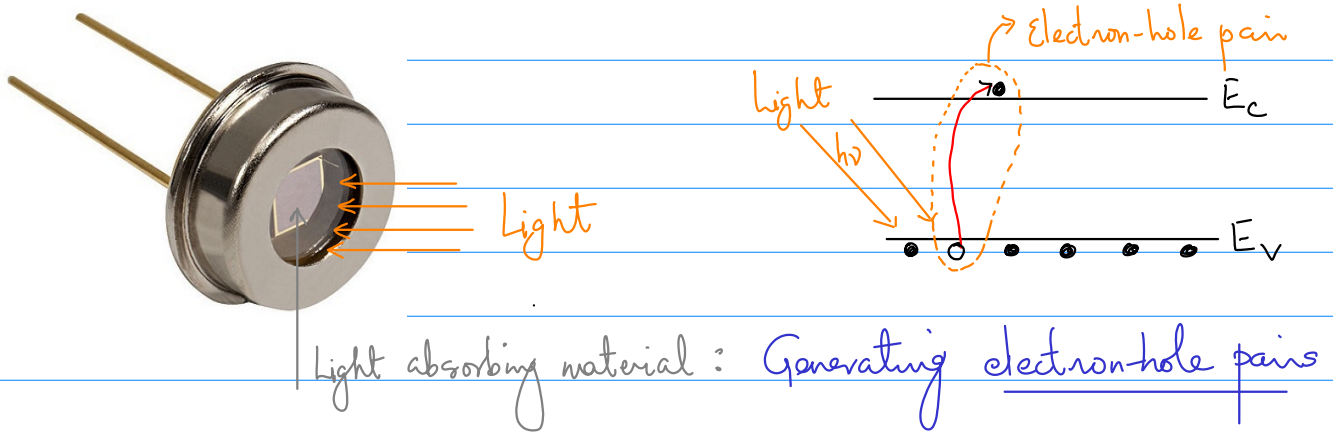 Electron-hole pair
Light
hν
E_C
Light
E_V
Light absorbing material : Generating electron-hole pairs